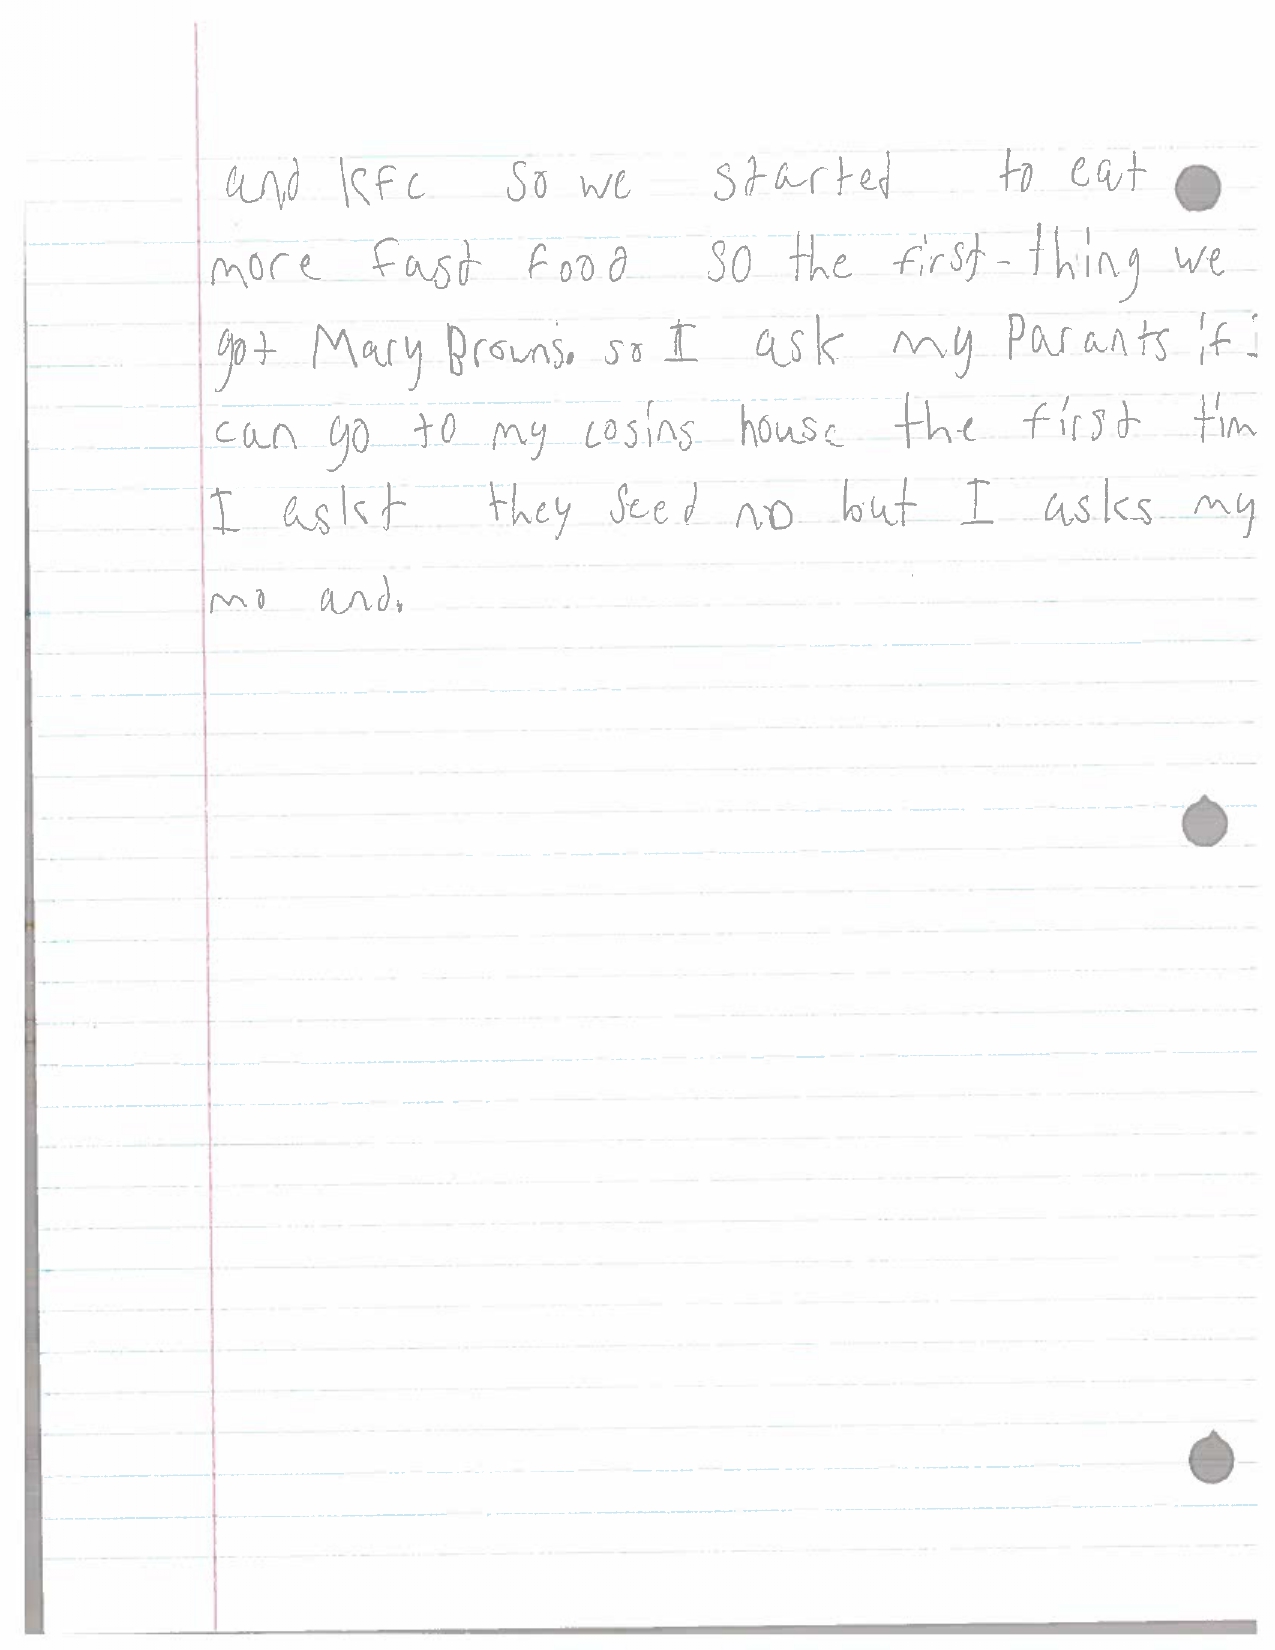 and KFC so we started to eat
more fast food so the first-thing we
got Mary Browns. so I ask my Parants if
can go to my cosins house the first tim
I askt they seed no but I asks my
mo and.